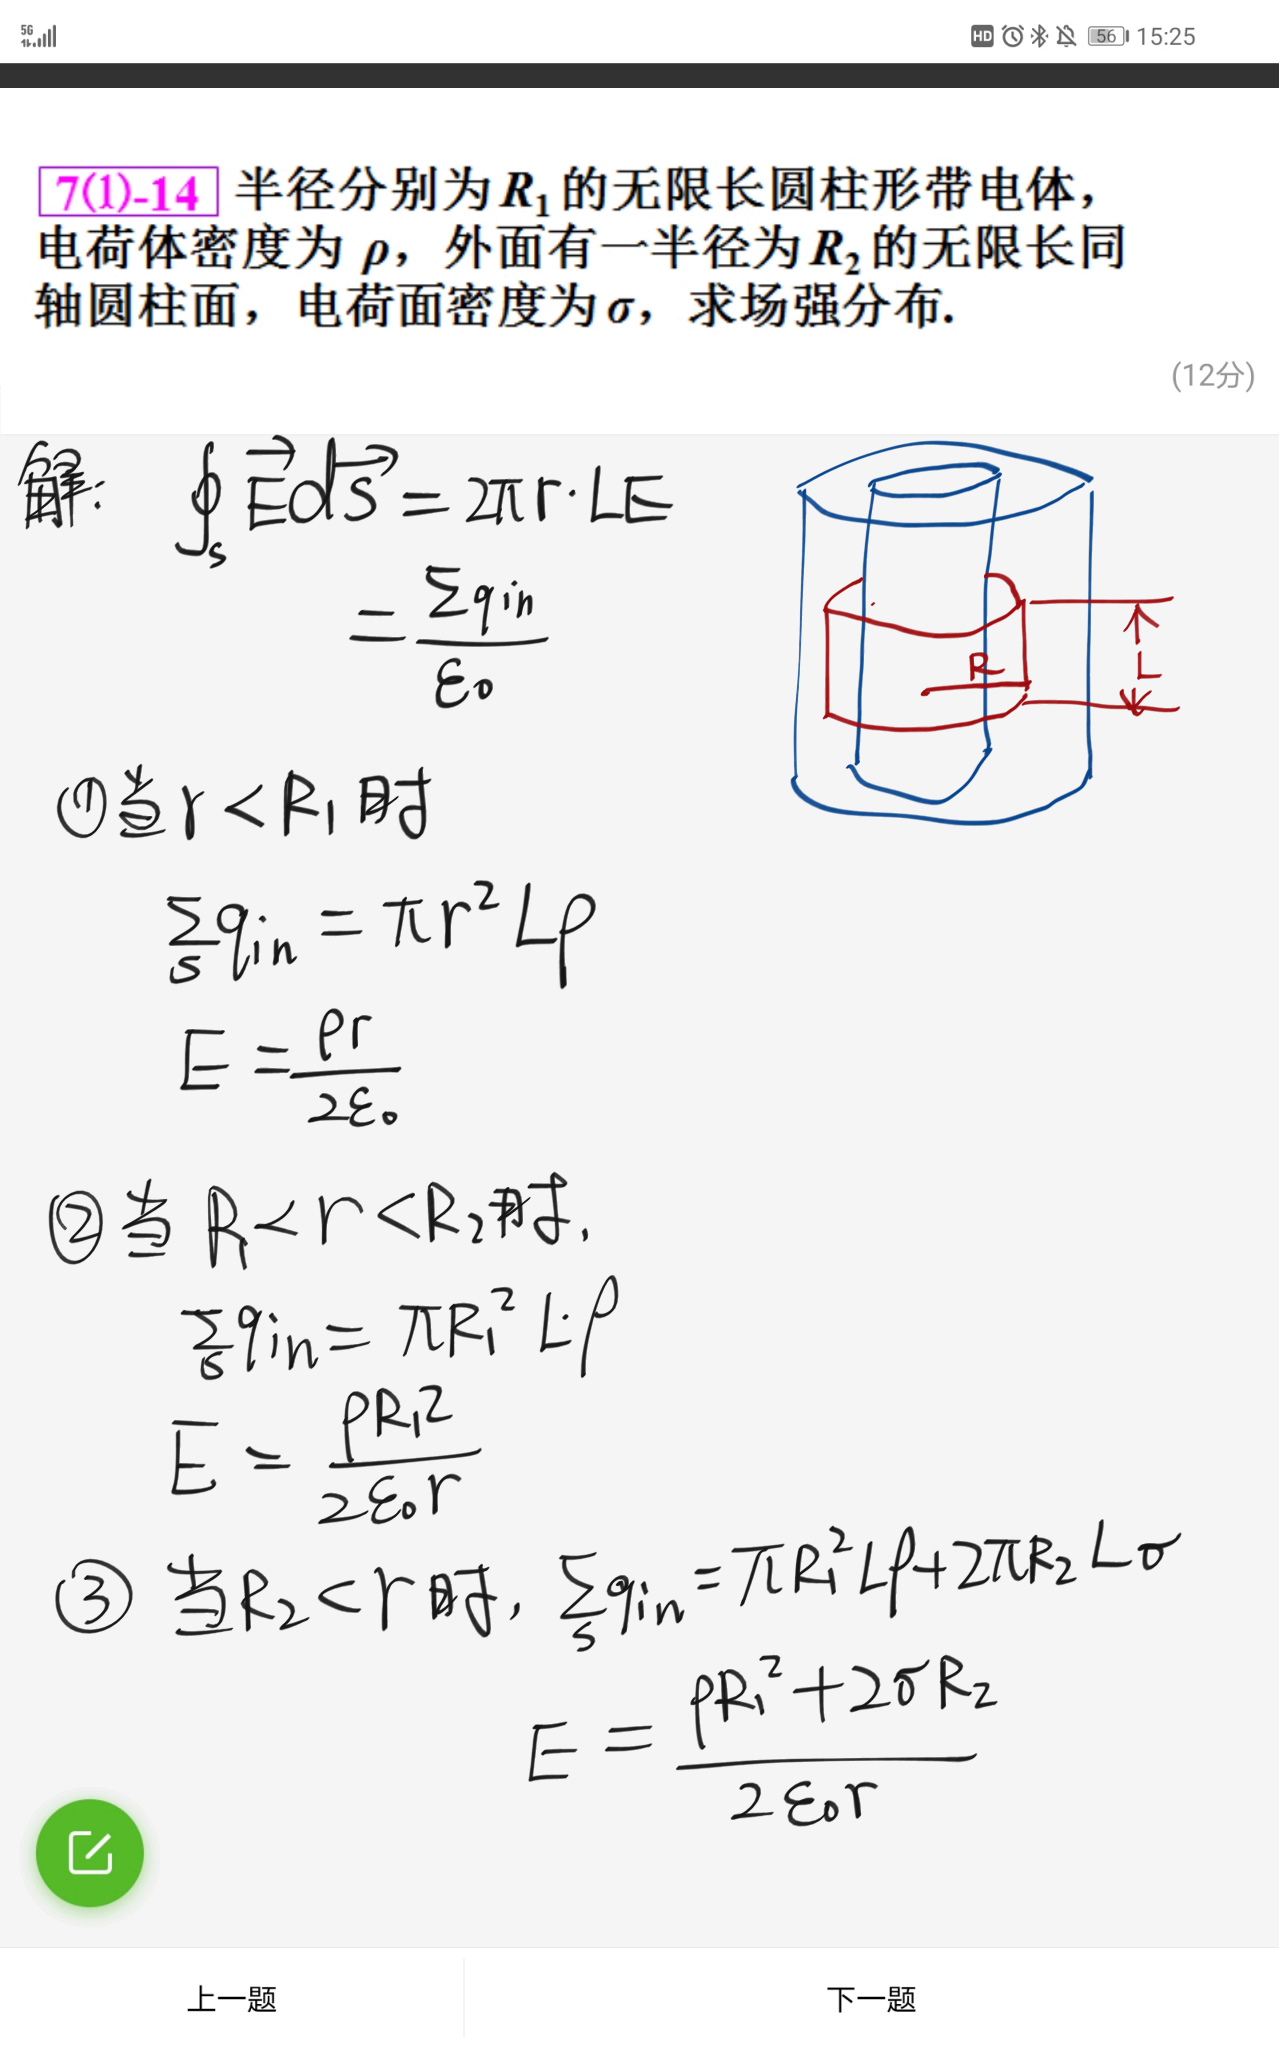 5G
HD 56 15:25
7(1)-14 半径分别为R₁的无限长圆柱形带电体，
电荷体密度为 ρ，外面有一半径为R₂的无限长同
轴圆柱面，电荷面密度为σ，求场强分布.
(12分)
解: ∮ₛ E⃗ dS⃗ = 2πr·LE
= Σqin / ε₀
R
L
①当 r < R₁ 时
Σ_S qin = πr² Lρ
E = ρr / 2ε₀
②当 R₁ < r < R₂ 时,
Σ_S qin = πR₁² L·ρ
E = ρR₁² / 2ε₀r
③ 当R₂ < r 时, Σ_S qin = πR₁²Lρ+2πR₂Lσ
E = ρR₁²+2σR₂ / 2ε₀r
上一题 下一题